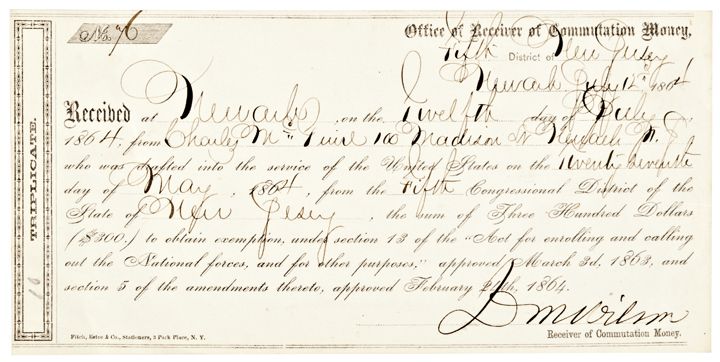 No. 76
Office of Receiver of Commutation Money,
Fifth District of New Jersey
Newark July 12th 1864
Received at Newark, on the Twelfth day of July,
1864, from Charles 100 Madison St Newark N. J.
who was drafted into the service of the United States on the Twenty Seventh
day of May, 1864, from the Fifth Congressional District of the
State of New Jersey, the sum of Three Hundred Dollars
($300,) to obtain exemption, under section 13 of the "Act for enrolling and calling
out the National forces, and for other purposes," approved March 3d, 1863, and
section 5 of the amendments thereto, approved February 24th, 1864.
D M Wilson
Receiver of Commutation Money.
Fitch, Estee & Co., Stationers, 3 Park Place, N. Y.
TRIPLICATE.